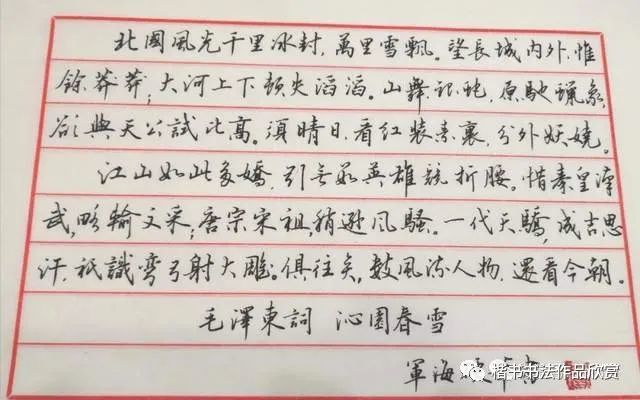 北國風光千里冰封,萬里雪飄。望長城内外,惟
餘莽莽;大河上下頓失滔滔。山舞銀蛇,原馳蠟象,
欲與天公試比高。須晴日,看紅裝素裹,分外妖嬈。
江山如此多嬌,引無數英雄競折腰。惜秦皇漢
武,略輸文采;唐宗宋祖,稍遜風騷。一代天驕,成吉思
汗,祇識彎弓射大雕。俱往矣,數風流人物,還看今朝。
毛澤東詞 沁園春雪
軍海
楷书书法作品欣赏